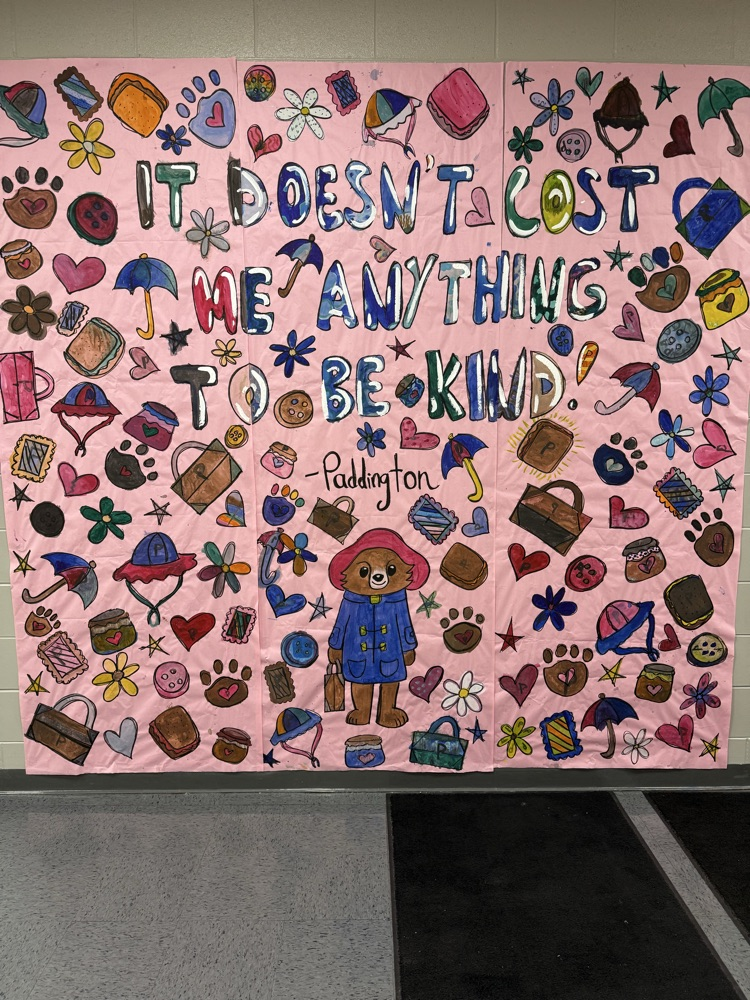 IT DOESN'T COST
ME ANYTHING
TO BE KIND!
-Paddington